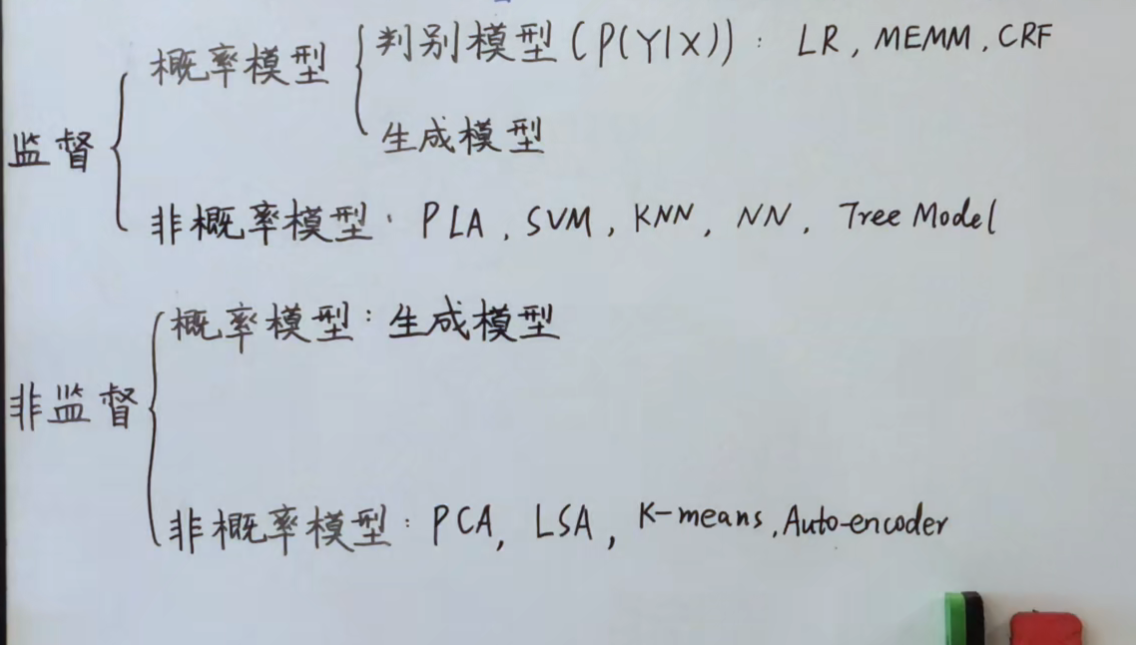 概率模型 判别模型(P(Y|X)): LR, MEMM, CRF
生成模型
监督
非概率模型: PLA, SVM, KNN, NN, Tree Model
概率模型: 生成模型
非监督
非概率模型: PCA, LSA, K-means, Auto-encoder